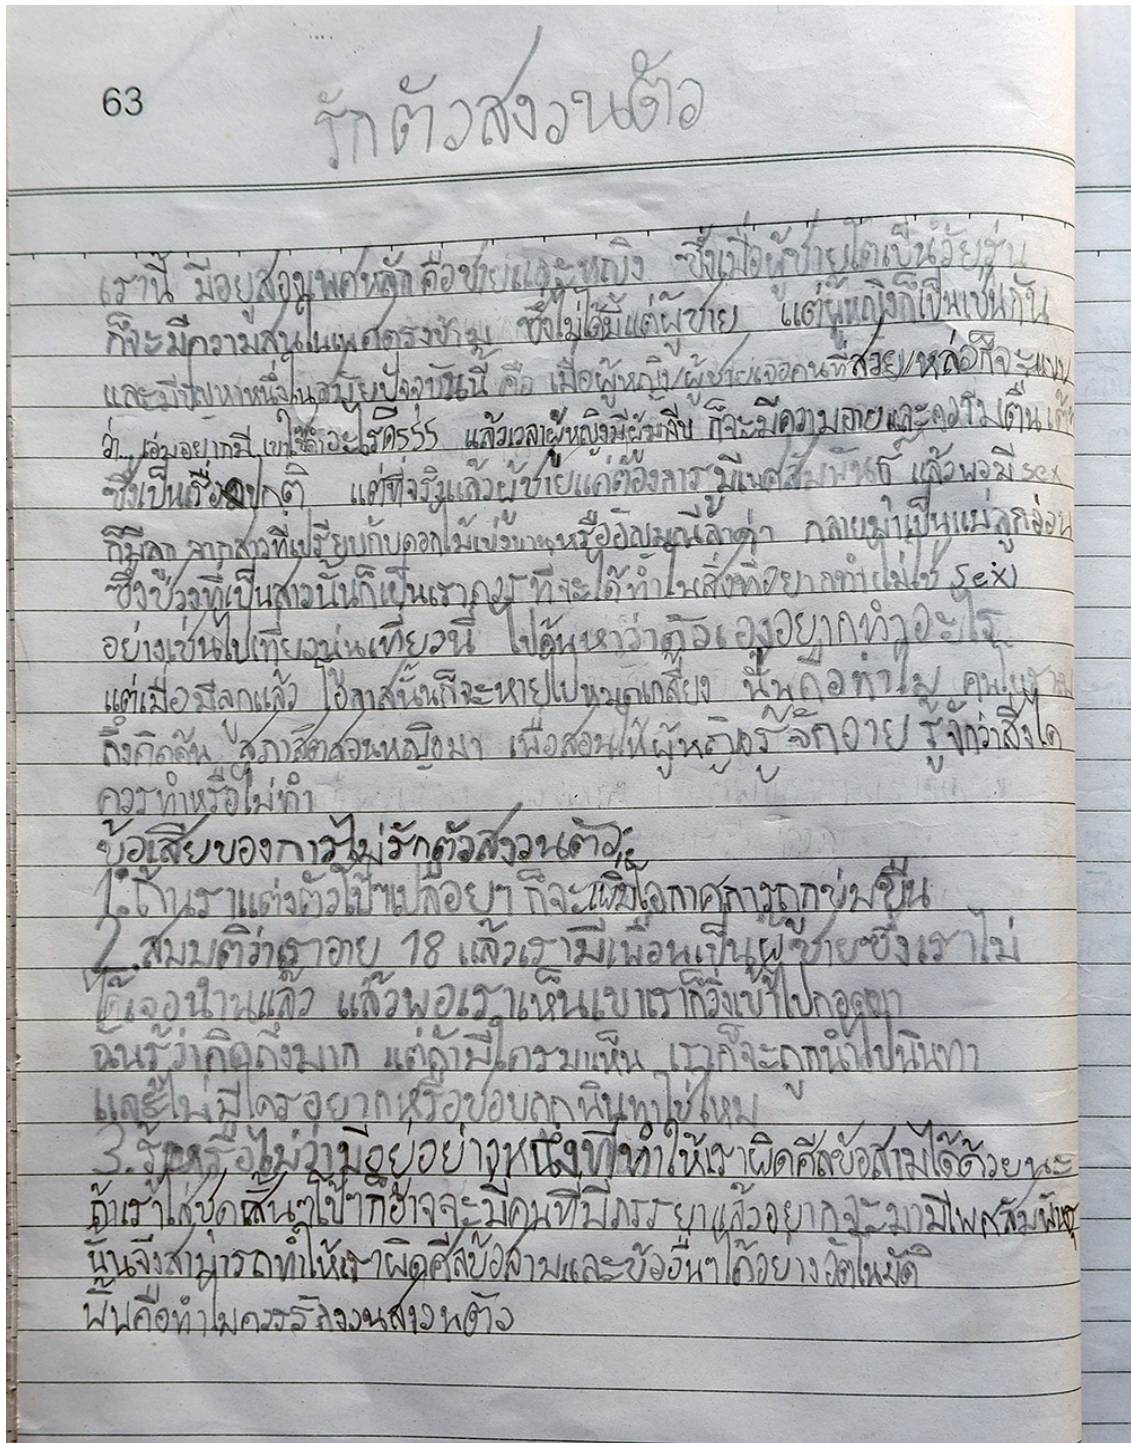 63
รักตัวสงวนตัว
เรานี้ มีอยู่สองเพศหลักคือชายและหญิง ซึ่งเมื่อผู้ชายโตเป็นวัยรุ่น
ก็จะมีความสนในเพศตรงข้าม ซึ่งไม่ได้มีแต่ผู้ชาย แต่ผู้หญิงก็เป็นเช่นกัน
และมีปัญหาหนึ่งในสมัยปัจจุบันนี้ คือ เมื่อผู้หญิง/ผู้ชายเจอคนที่สวย/หล่อก็จะแบบ
ว่า... แล้วเวลาผู้หญิงมีผู้มาสีบ ก็จะมีความอายและความตื่นเต้น
ซึ่งเป็นเรื่องปกติ แต่ที่จริงแล้วผู้ชายแค่ต้องการมีเพศสัมพันธ์ แล้วพอมี sex
ก็มีลูก จากสาวที่เปรียบกับดอกไม้เบ่งบานหรืออัญมณีล้ำค่า กลายมาเป็นแม่ลูกอ่อน
ซึ่งช่วงที่เป็นสาวนั้นก็เป็นเราควรที่จะได้ทำในสิ่งที่อยากทำไม่ใช่ Sex
อย่างเช่นไปเที่ยวนู่นเที่ยวนี่ ไปค้นหาว่าตัวเองอยากทำอะไร
แต่เมื่อมีลูกแล้ว โอกาสนั้นก็จะหายไปหมดเกลี้ยง นั้นคือทำไม คนโบราณ
ถึงคิดค้น สุภาสิตสอนหญิงมา เพื่อสอนให้ผู้หญิงรู้จักอาย รู้จักว่าสิ่งใด
ควรทำหรือไม่ทำ
ข้อเสียของการไม่รักตัวสงวนตัว:
1.ถ้าเราแต่งตัวโป๊ๆเปลือยๆ ก็จะเพิ่มโอกาศการถูกข่มขืน
2.สมมติว่าเราอายุ 18 แล้วเรามีเพื่อนเป็นผู้ชายซึ่งเราไม่
ได้เจอนานแล้ว แล้วพอเราเห็นเขาเราก็วิ่งเข้าไปกอดเขา
ฉันรู้ว่าคิดถึงมาก แต่ถ้ามีใครมาเห็น เราก็จะถูกนำไปนินทา
และไม่มีใครอยากหรือชอบถูกนินทาใช่ไหม
3.รู้หรือไม่ว่ามีอยู่อย่างหนึ่งที่ทำให้เราผิดศีลข้อสามได้ด้วยนะ
ถ้าเราใส่ชุดสั้นๆโป๊ๆก็อาจจะมีคนที่มีภรรยาแล้วอยากจะมามีเพศสัมพันธ์
นั้นจึงสามารถทำให้เราผิดศีลข้อสามและข้ออื่นๆได้อย่างอัตโนมัติ
นั้นคือทำไมควรรักงวนสงวนตัว